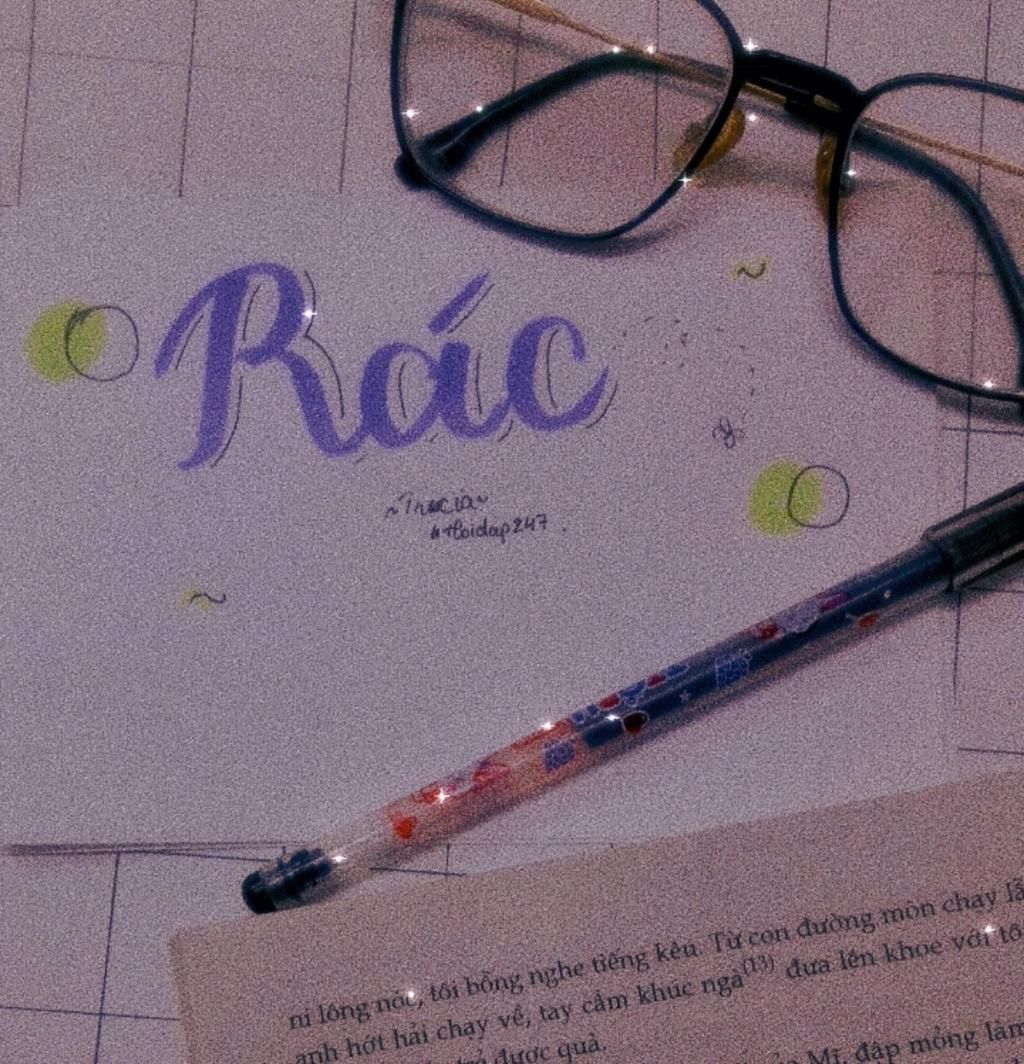 Rác
~Tracia~
#Hoidap247.
ni lông nóc, tôi bỗng nghe tiếng kêu. Từ con đường mòn chạy
anh hớt hải chạy về, tay cầm khúc ngà(13) đưa lên khoe với
được quà.
Mị, đập mỏng